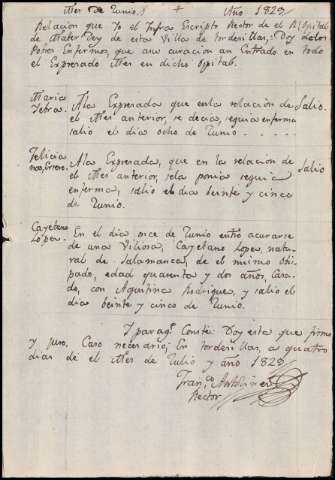 Mes de Junio. + Año 1829
Relacion que Yo el Infra Escripto Rector de el Rl Ospital
de Mater Dey de esta Villa de tordesillas; Doy de los
Pobres Enfermos, que a su curacion an Entrado en todo
el Expresado Mes en dicho Ospital.
Maria A la Expresada que en la relacion de Salio.
Yebra. el Mes anterior, se decia, seguia enferma
salio el dia ocho de Junio - . . . .
Felicia A la Expresada, que en la relacion de Salio
el Mes anterior, se la ponia seguia
enferma, salio el dia beinte y cinco
de Junio.
Cayetano En el dia once de Junio entró a curarse
Lopez. de una Viliosa, Cayetano Lopez, natu-
ral de Salamanca, de el mismo Obis-
pado, edad quarenta y dos años, Casa-
do, con Agustina Rodriguez, y salió el
dia beinte y cinco de Junio.
Y para qe Conste Doy esta que firmo
y juro, Caso necesario; En tordesillas, a quatro
dias de el Mes de Julio y año 1829
Franco Antolinez
Rector